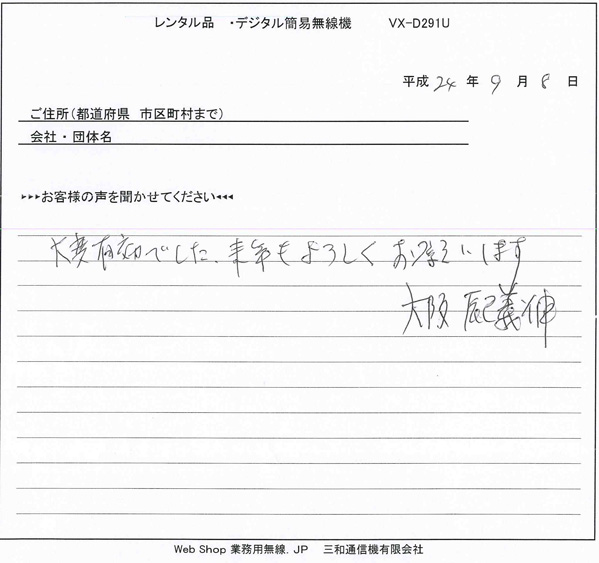 レンタル品 ・デジタル簡易無線機 VX-D291U
平成 24 年 9 月 8 日
ご住所(都道府県 市区町村まで)
会社・団体名
▸▸▸お客様の声を聞かせてください◂◂◂
大変有効でした、来年もよろしくお願いします
大阪 辰己義伸
Web Shop 業務用無線.JP 三和通信機有限会社